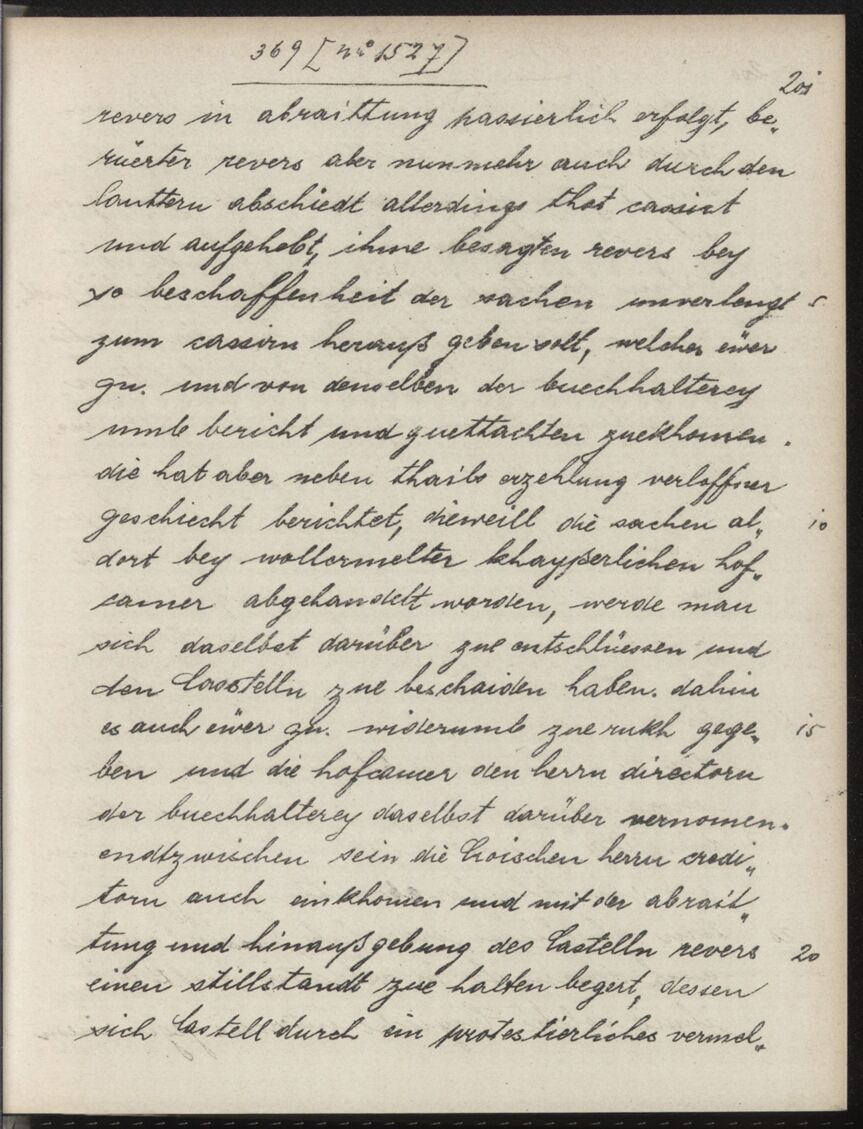 369 [nro 1527]
201
revers in abraittung passierlich erfolgt, be„
rüerter revers aber nunmehr auch durch den
lauttern abschiedt allerdings thot cassiert
und aufgehebt, ihme besagten revers bey
so beschaffenheit der sachen unverlengt 5
zum cassirn herauß geben solt, welches eüer
gn. und von denselben der buechhalterey
umb bericht und guettachten zuekhomen.
die hat aber neben thails erzehlung verloffner
geschiecht berichtet, dieweill die sachen al„ 10
dort bey wollermelter khayßerlichen hof„
camer abgehandelt worden, werde man
sich daselbst darüber zue entschlüessen und
den Casstelln zue beschaiden haben. dahin
es auch eüer gn. widerumb zue rukh gege„ 15
ben und die hofcamer den herrn directorn
der buechhalterey daselbst darüber vernomen.
endtzwischen sein die Croischen herrn credi„
torn auch einkhomen und mit der abrait„
tung und hinaußgebung des Castelln revers 20
einen stillstandt zue halten begert, dessen
sich Castell durch ein protestierliches vermel„